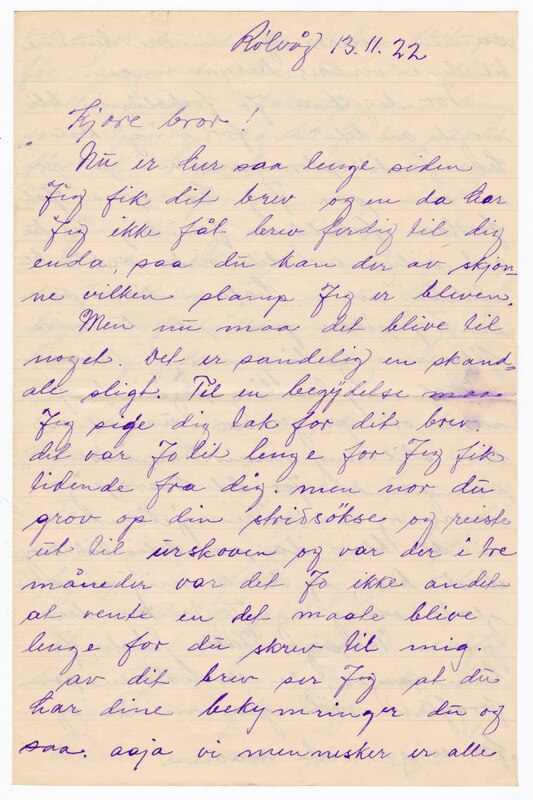 Rølvåg 13.11.22
Kjære bror!
Nu er hær saa lenge siden
Jeg fik dit brev og en da har
Jeg ikke fåt brev ferdig til dig
enda, saa du kan der av skjøn-
ne vilken slamp Jeg er bleven.
Men nu maa det blive til
noget. Det er sandelig en skand-
ale sligt. Til en begydelse maa
Jeg sige dig tak for dit brev
det var Jo lit lenge for Jeg fik
tidende fra dig. men nor du
grov op din stridsökse og reiste
ut til urskoven og var der i tre
måneder var det Jo ikke andet
at vente en det maate blive
lenge for du skrev til mig.
av dit brev ser Jeg at du
har dine bekymringer du og
saa. aaja vi mennesker er alle